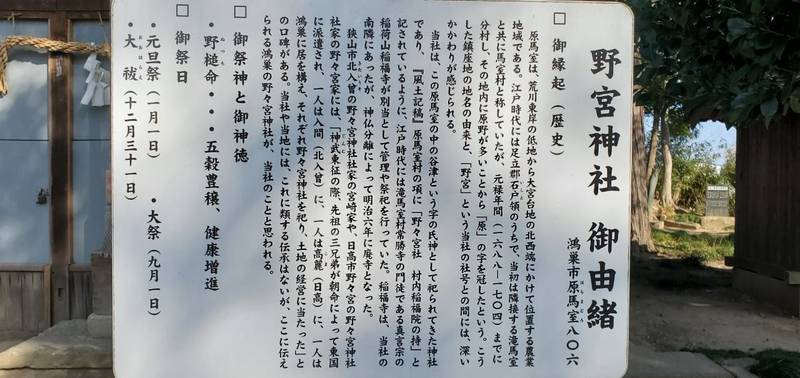 野宮神社 御由緒
鴻巣市原馬室八〇六
□ 御縁起(歴史)
原馬室は、荒川東岸の低地から大宮台地の北西端にかけて位置する農業
地域である。江戸時代には足立郡石戸領のうちで、当初は隣接する滝馬室
と共に馬室村と称していたが、元禄年間(一六八八-一七〇四)までに
分村し、その地内に原野が多いことから「原」の字を冠したという。こう
した鎮座地の地名の由来と、「野宮」という当社の社号との間には、深い
かかわりが感じられる。
当社は、この原馬室の中の谷津という字の氏神として祀られてきた神社
であり、『風土記稿』原馬室村の項に「野々宮社 村内稲福院の持」と
記されているように、江戸時代には滝馬室村常勝寺の門徒である真言宗の
稲荷山稲福寺が別当として管理や祭祀を行っていた。稲福寺は、当社の
南隣にあったが、神仏分離によって明治六年に廃寺となった。
狭山市北入曽の野々宮神社社家の宮崎家や、日高市野々宮の野々宮神社
社家の野々宮家には、「神武東征の際、先祖の三兄弟が朝命によって東国
に派遣され、一人は入間(北入曽)に、一人は高麗(日高)に、一人は
鴻巣に居を構え、それぞれ野々宮神社を祀り、土地の経営に当たった」と
の口碑がある。当社や当地には、これに類する伝承はないが、ここに伝え
られる鴻巣の野々宮神社が、当社のことと思われる。
□ 御祭神と御神徳
・野槌命・・・五穀豊穣、健康増進
□ 御祭日
・元旦祭(一月一日) ・大祭(九月一日)
・大祓(十二月三十一日)